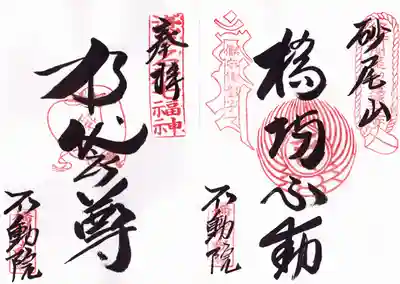 砂尾山
橋場不動
不動院
奉拝
福神
布袋尊
不動院